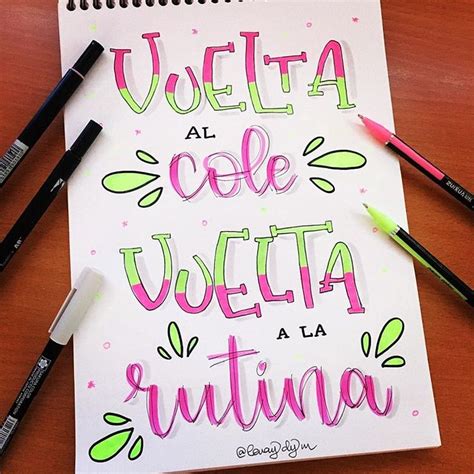 VUELTA
AL
cole
VUELTA
A LA
rutina